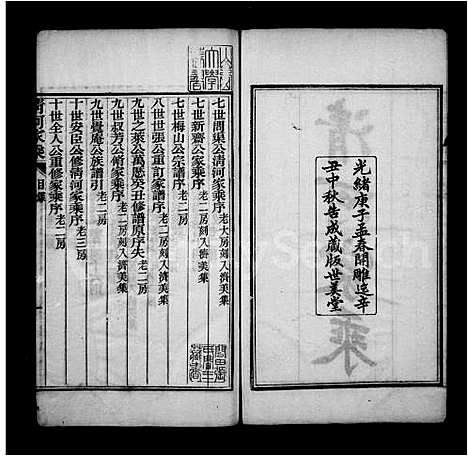 光緒庚子孟春開雕迄辛
丑中秋告成藏版世美堂
七世問渠公清河家乘序 老大房刻入濟美集
七世新齋公家乘序 老二房刻入濟美集
七世梅山公宗譜序 老二房
八世世張公重訂家譜序 老二房刻入濟美集
九世之萊公萬慝癸丑修譜原序失 老二房
九世叔芳公脩家乘序 老二房刻入濟美集
九世貴庵公族譜引 老二房
十世安臣公修清河家乘序 老三房
十世全人公重修家乘序 老二房